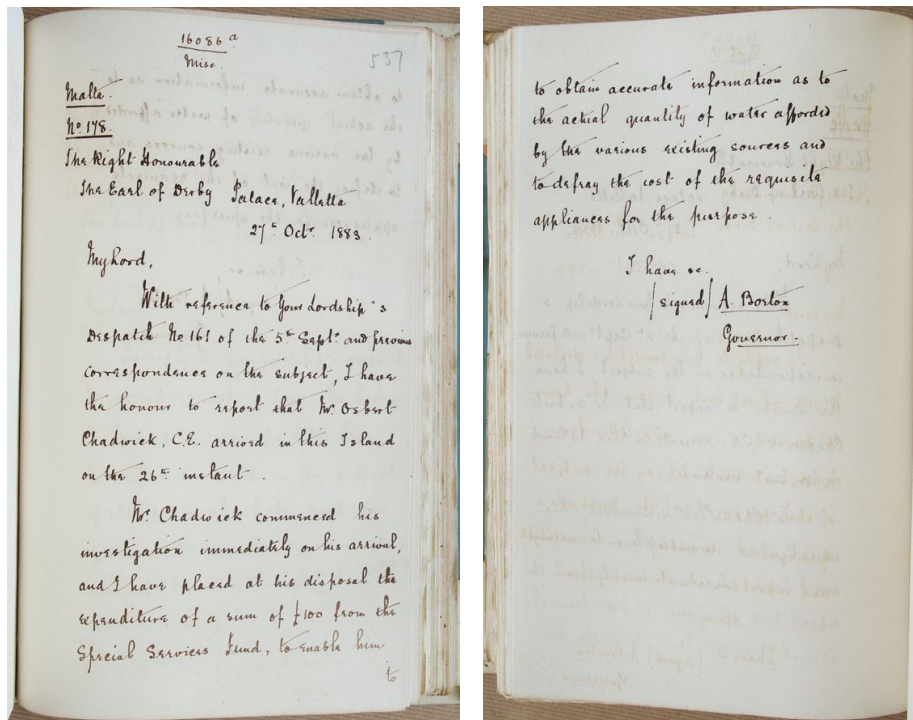 16086 a
Misc.
537
Malta.
No. 178.
The Right Honourable
The Earl of Derby Palace, Valletta
27th Octr. 1883.
My Lord,
With reference to Your Lordship's
Despatch No 161 of the 5th Septr. and previous
correspondence on the subject, I have
the honour to report that Mr. Osbert
Chadwick, C.E. arrived in this Island
on the 26th instant.
Mr. Chadwick commenced his
investigation immediately on his arrival,
and I have placed at his disposal the
expenditure of a sum of £100 from the
Special Services Fund, to enable him
to
to obtain accurate information as to
the actual quantity of water afforded
by the various existing sources and
to defray the cost of the requisite
appliances for the purpose.
I have &c.
(signed) A. Borton
Governor.